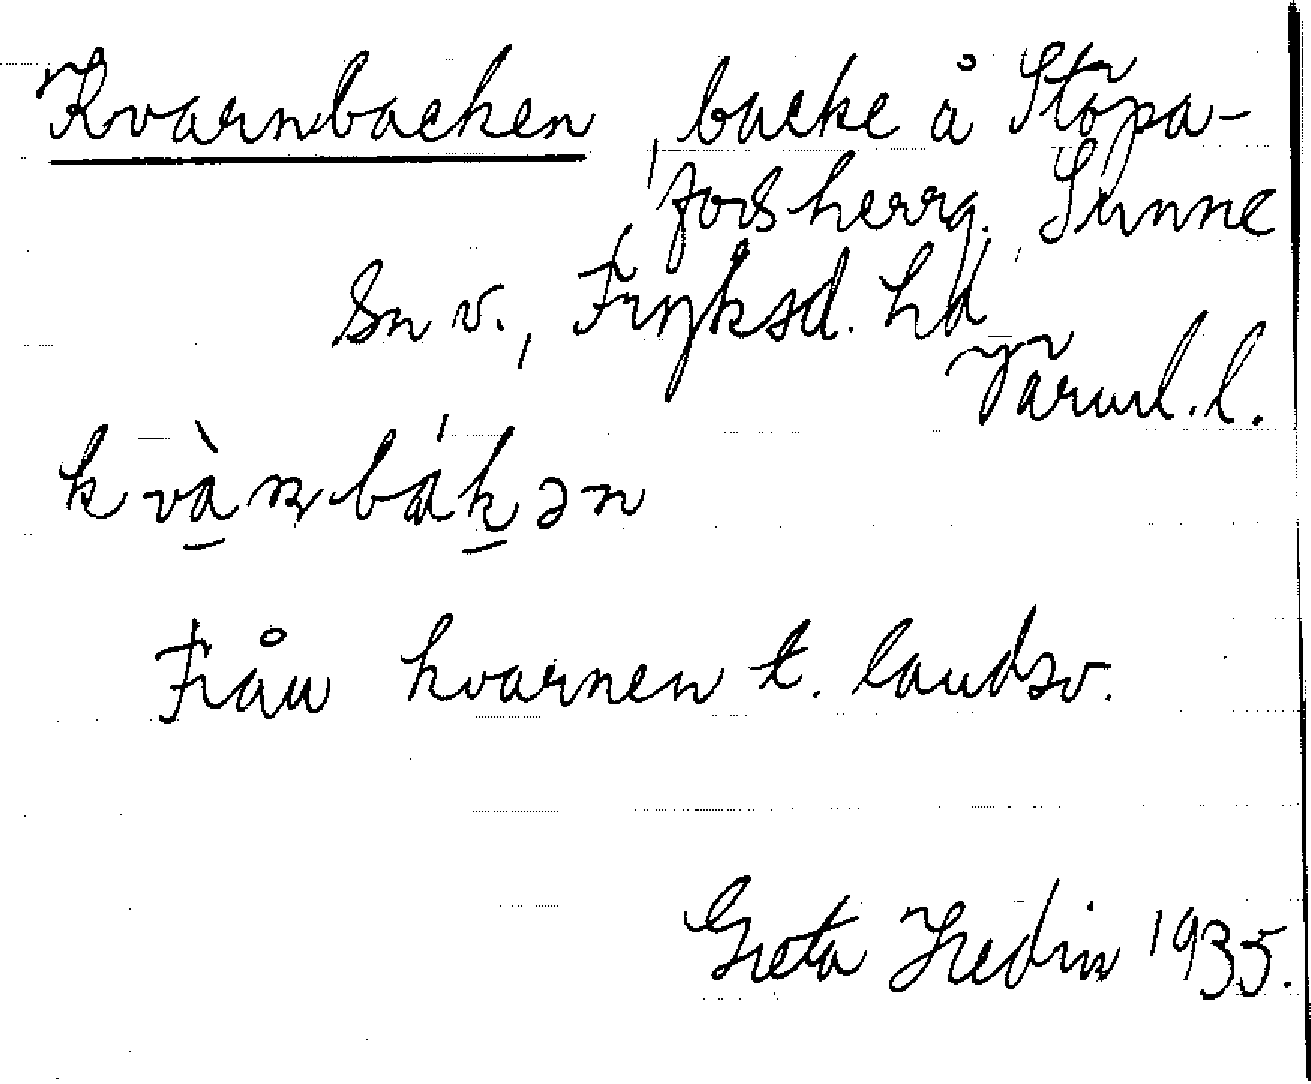 Kvarnbacken, backe å Stöpa-
fors herrg. Sunne
sn v., Fryksd. hd
Värml. l.
kvàn̠bák̠ən
Från kvarnen t. landsv.
Greta Hedin 1935.